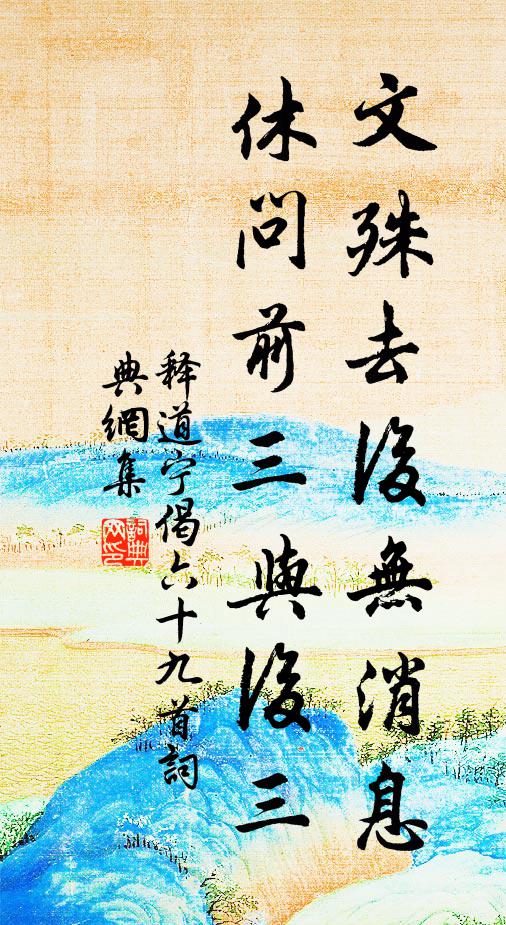 文殊去後無消息
休問前三與後三
释道宁偈六十九首詞
典網集
詞典
网印